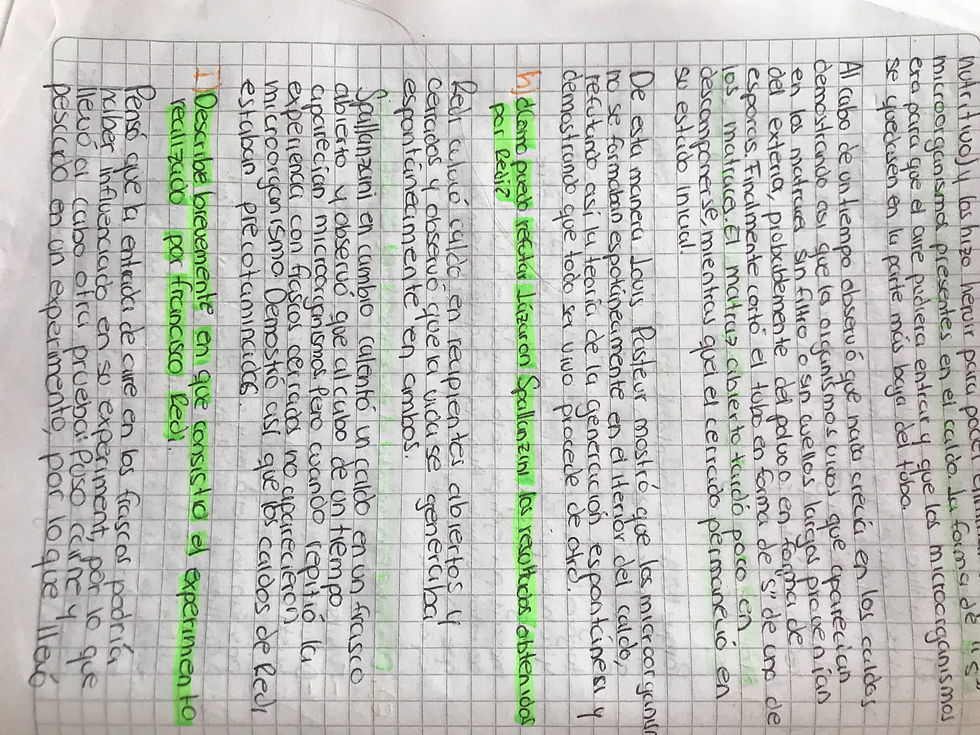 nuevos) y los hizo
microorganismos presentes en el caldo. La forma de "s"
era para que el aire pudiera entrar y que los microorganismos
se quedasen en la parte más baja del tubo.
Al cabo de un tiempo observó que nada crecía en los caldos
demostrando así que los organismos vivos que aparecían
en los matraces sin filtro o sin cuellos largos provenían
del exterio, probablemente del polvo o en forma de
esporas. Finalmente cortó el tubo en forma de "s" de uno de
los matraces. El matraz abierto tardó poco en
descomponerse mientras que el cerrado permaneció en
su estado inicial.
De esta manera Louis Pasteur mostró que los microorganis
no se formaban espotáneamente en el iterior del caldo,
refutando así la teoría de la generación espontánea y
demostrando que todo ser vivo procede de otro.
h) ¿Como puedo refutar Lázzaron Spallanzini los resultados obtenidos
por Redi?
Redi calució caldo en recipientes abiertos y
cerrados y observó que la vida se generaba
espontáneamente en ambos.
Spallanzini en cambio calentó un caldo en un frasco
abierto y observó que al cabo de un tiempo
aparecían microorganismos Pero cuando repitió la
experiencia con frascos cerrados no aparecieron
microorganismo. Demostró así que los caldos de Redi
estaban precotaminados.
I) Describe brevemente en que consistio el experimento
realizado por francisco Redi.
Pensó que la entrada de aire en los frascos podría
haber influenciado en su experiment, por lo que
llevó al cabo otra prueba: Puso carne y
pescado en un experimento, por lo que llevó